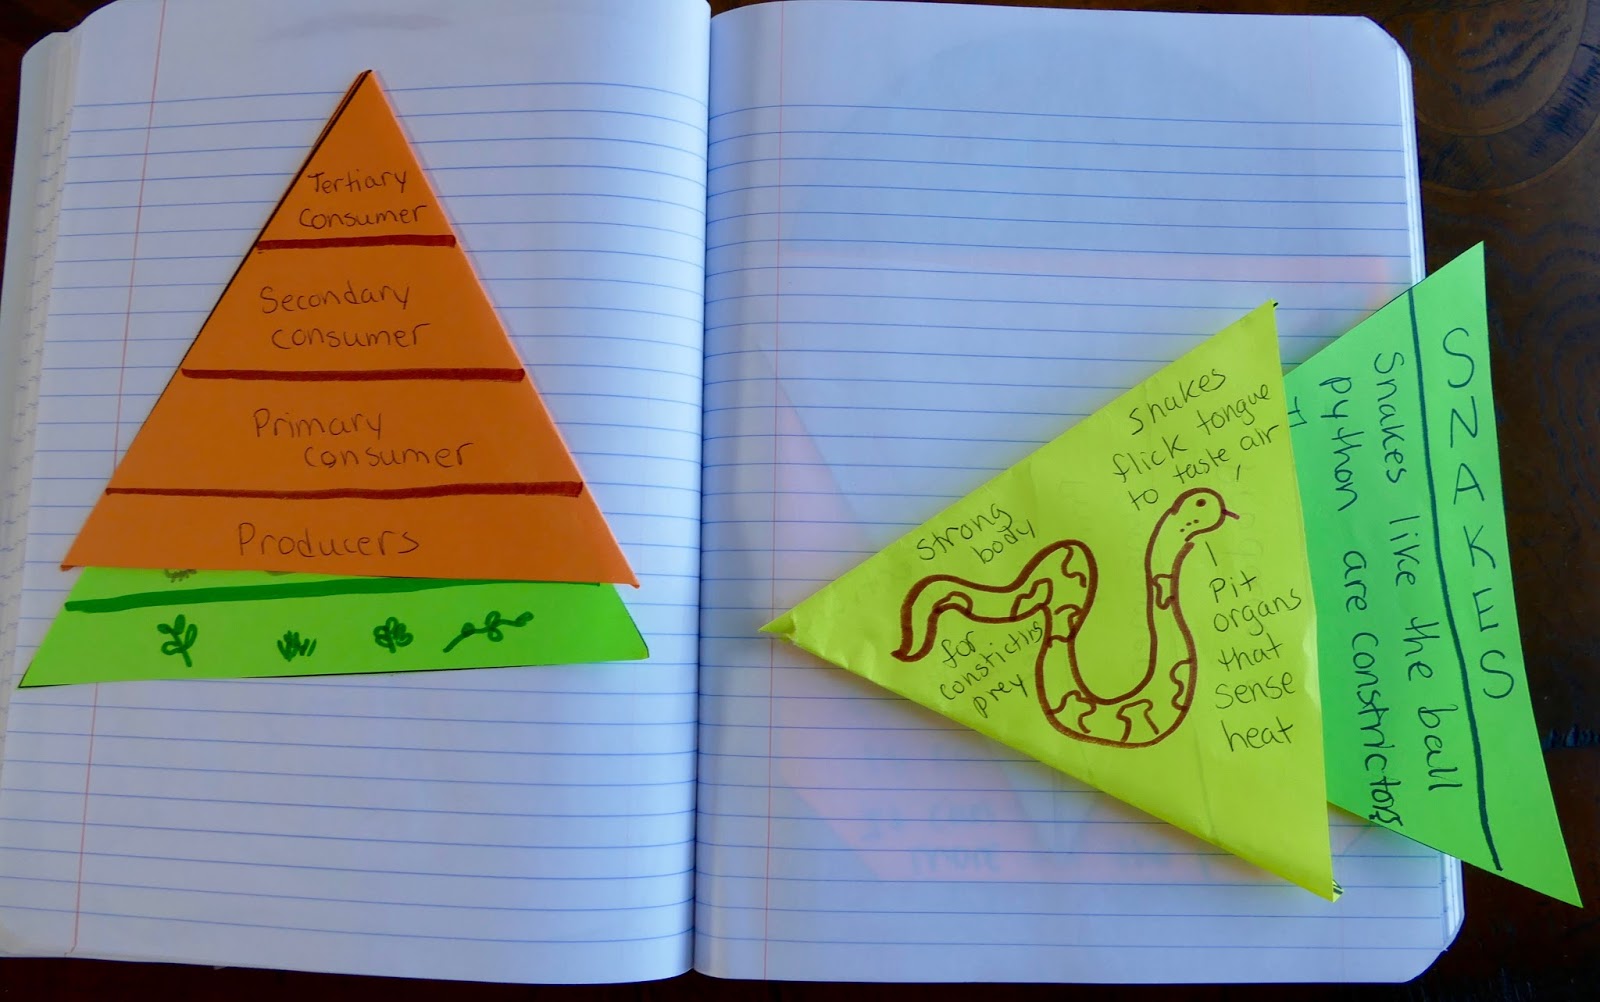 Tertiary
Consumer
Secondary
consumer
Primary
consumer
Producers
Snakes
flick tongue
to taste air
Strong
body
for
constricting
prey
Pit
organs
that
sense
heat
SNAKES
Snakes like the ball
python are constrictors